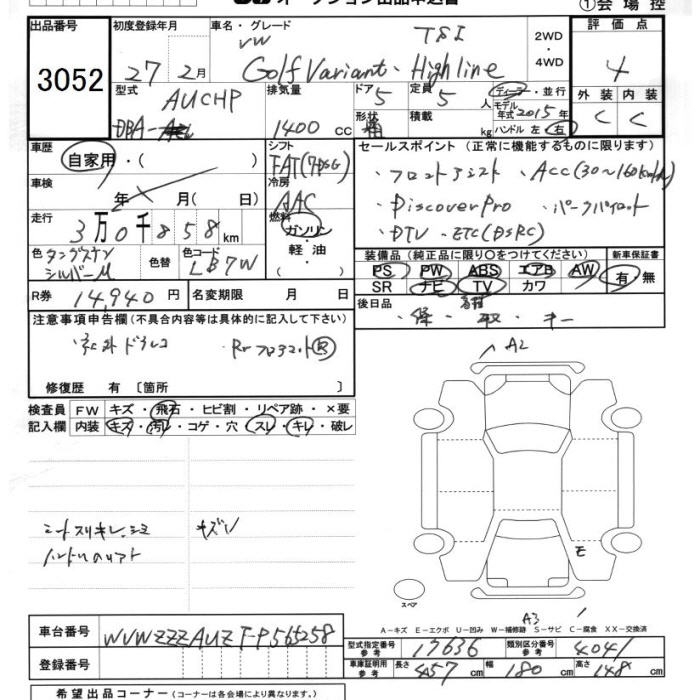 ①会場控
出品番号 初度登録年月 車名・グレード 評価点
3052 27 2月 VW TSI 2WD・4WD 4
Golf Variant・Highline
型式 排気量 ドア 定員 ディーラー・並行 外装 内装
AUCHP 5 5人 モデル年式 2015年 C C
DBA- 1400cc 形状 積載 kg ハンドル 左 右
車歴 シフト セールスポイント (正常に機能するものに限ります)
自家用・( ) FAT(7DSG) ・フロントアシスト ・ACC(30~160km/h)
車検 冷房 ・Discover Pro ・パークパイロット
年 月(日) AAC ・DTV ・ETC(DSRC)
走行 燃料
3万0千858km ガソリン
軽油
色 タングステン 色替 色コード 装備品 (純正品に限り○をつけてください) 新車保証書
シルバーM LB7W PS PW ABS エアB AW 有・無
SR ナビ TV カワ
R券 14,940円 名変期限 月 日 後日品
注意事項申告欄 (不具合内容等は具体的に記入して下さい) ・保 ・取 ・キー
・社外ドラレコ
修復歴 有 〔箇所 〕 A2
検査員 FW キズ・飛石・ヒビ割・リペア跡・×要
記入欄 内装 キズ・汚レ・コゲ・穴・スレ・キレ・破レ
シートスリキレ、シミ キズ
E
スペア
A3
A-キズ E-エクボ U-凹み W-補修跡 S-サビ C-腐食 XX-交換済
車台番号 WVWZZZAUZFP565258
型式指定番号 参考 17636 類別区分番号 参考 4041
登録番号 車庫証明用 参考 長さ 457cm 幅 180cm 高さ 148cm
希望出品コーナー (コーナーは各会場により異なります。)